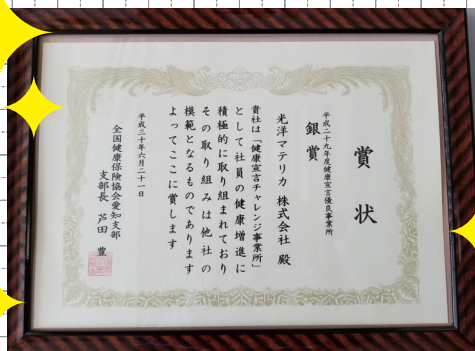 賞状
平成二十九年度健康宣言優良事業所
銀賞
光洋マテリカ 株式会社 殿
貴社は「健康宣言チャレンジ事業所」
として社員の健康増進に
積極的に取り組まれており
その取り組みは他社の
模範となるものであります
よってここに賞します
平成三十年六月二十一日
全国健康保険協会愛知支部
支部長 芦田 豊